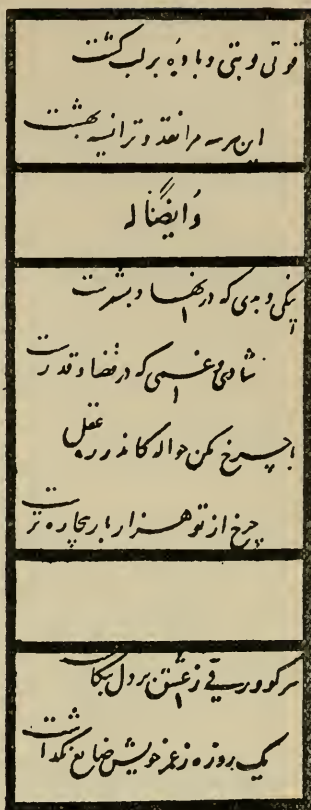 قوتی و بتی و بادهٔ بر لب کشت
این هر سه مرا نقد و ترا نسیه بهشت
وَایضاً لَه
نیکی و بدی که در نهاد بشرست
شادی و غمی که در قضا و قدرست
با چرخ مکن حواله کاندر ره عقل
چرخ از تو هزار بار بیچاره ترست
هر کو ورقی ز عشق بر دل بنگاشت
یک روزه ز عمر خویش ضایع نگذاشت